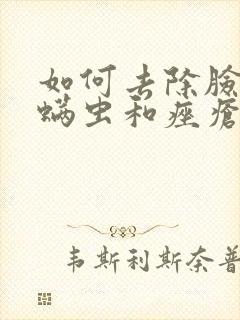 如何去除臉
螨虫和痤瘡
韦斯利斯奈普